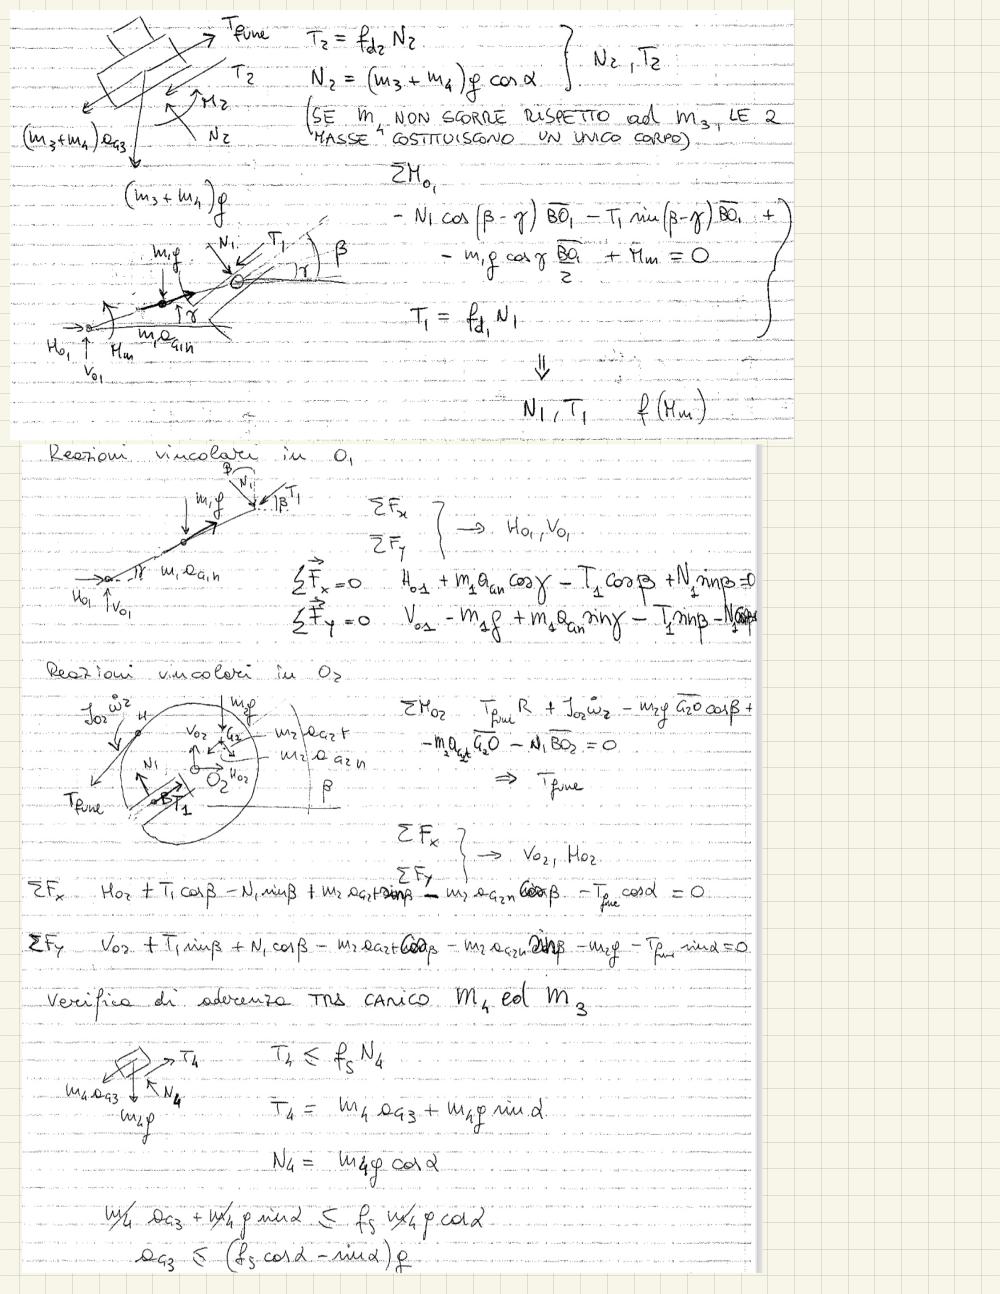 T₂ = f_d₂ N₂
N₂ = (m₃ + m₄) g cos α } N₂, T₂
(SE m₄ NON SCORRE RISPETTO ad m₃, LE 2
MASSE COSTITUISCONO UN UNICO CORPO)
T_fune
T₂
M₂
N₂
(m₃+m₄) a_G3
(m₃+m₄) g
ΣM_O₁
- N₁ cos (β - γ) BO₁ - T₁ sin (β - γ) BO₁ +
- m₁g cos γ BO₁/2 + Mm = 0
T₁ = f_d₁ N₁
⇓
N₁, T₁ f (Mm)
N₁
T₁
β
m₁g
γ
γ
m₁ a_G1n
H_O₁
Mm
V_O₁
Reazioni vincolari in O₁
β
N₁
T₁
β
m₁g
γ
m₁ a_G1n
H_O₁
V_O₁
ΣFx
ΣFy } → H_O₁, V_O₁
ΣFx = 0 H_O1 + m₁ a_an cos γ - T₁ cos β + N₁ sin β = 0
ΣFy = 0 V_O1 - m₁g + m₁ a_an sin γ - T₁ sin β - N₁ cos β
Reazioni vincolari in O₂
J_O2 ω̇₂
H
m₂g
V_O2
G₂
m₂ a_G2t
m₂ a_G2n
H_O2
O₂
N₁
B
T₁
T_fune
β
ΣM_O2 T_fune R + J_O2 ω̇₂ - m₂g G₂O cos β +
- m₂ a_G2t G₂O - N₁ BO₂ = 0
⇒ T_fune
ΣFx
ΣFy } → V_O2, H_O2
ΣFx H_O2 + T₁ cos β - N₁ sin β + m₂ a_G2t sin β - m₂ a_G2n cos β - T_fune cos α = 0
ΣFy V_O2 + T₁ sin β + N₁ cos β - m₂ a_G2t cos β - m₂ a_G2n sin β - m₂g - T_fune sin α = 0
Verifica di aderenza TRA CARICO m₄ ed m₃
T₄
m₄ a_G3
N₄
m₄g
T₄ ≤ f_s N₄
T₄ = m₄ a_G3 + m₄g sin α
N₄ = m₄g cos α
m₄ a_G3 + m₄ g sin α ≤ f_s m₄ g cos α
a_G3 ≤ (f_s cos α - sin α) g